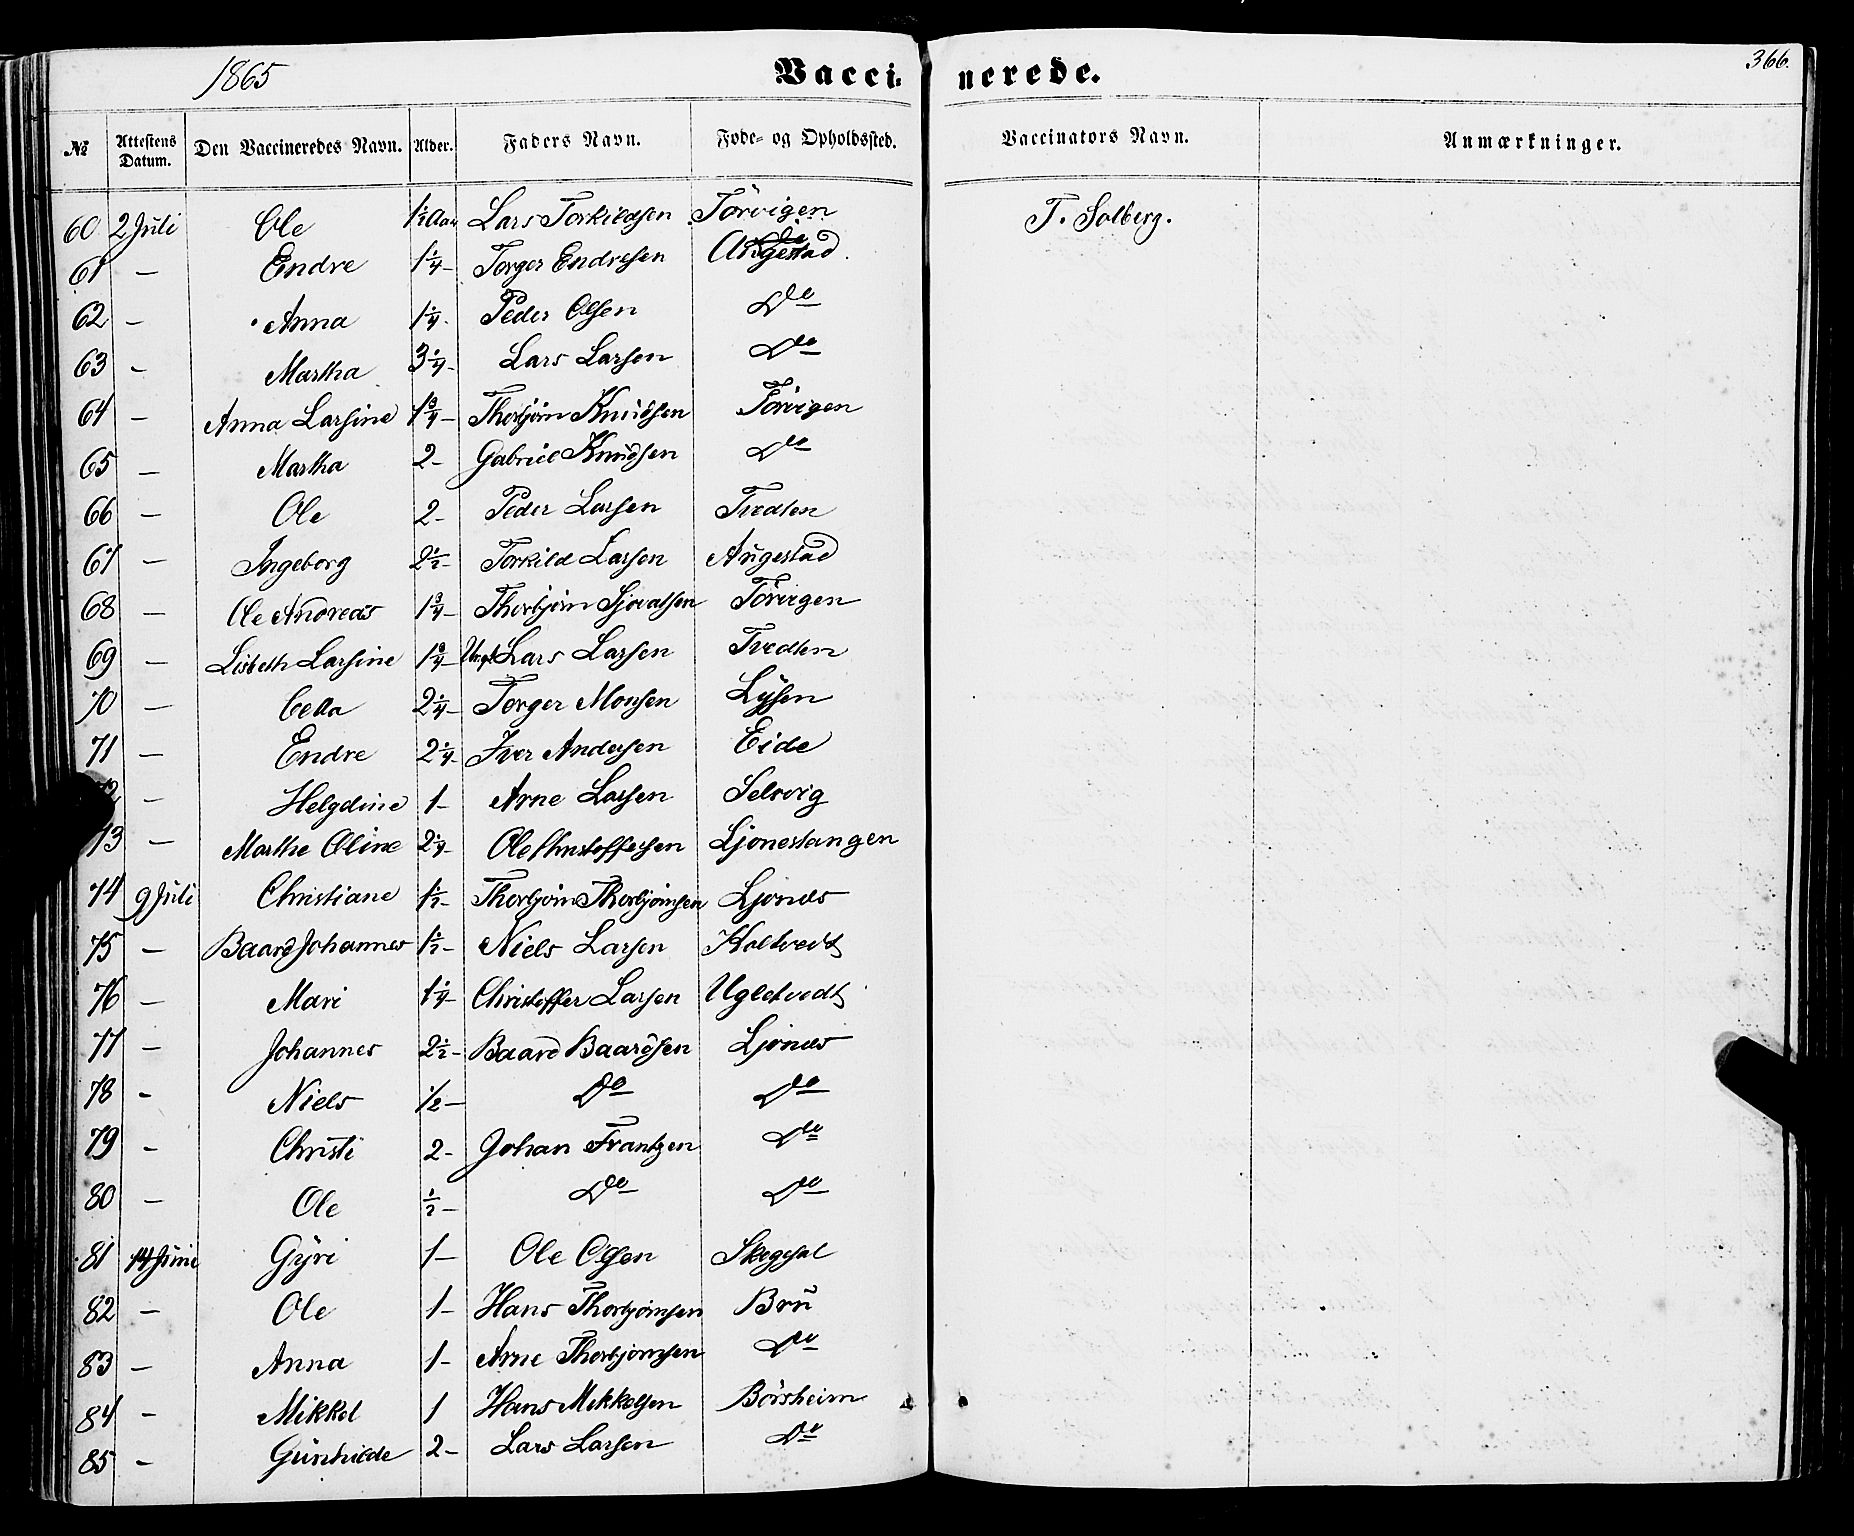 1865 Vaccinerede. 366.
№ Attestens Datum. Den Vaccineredes Navn. Alder. Faders Navn. Føde- og Opholdssted. Vaccinators Navn. Anmærkninger.
60 2 Juli Ole 1½ Aar Lars Torkildsen Törvigen T. Solberg.
61 — Endre 1¼ — Torger Endresen Angestad.
62 — Anna 1¼ - Peder Olsen Do
63 - Martha 3¼ - Lars Larsen Do
64 - Anna Larsine 1¾ — Thorbjörn Knudsen Törvigen
65 — Martha 2 - Gabriel Knudsen Do
66 — Ole 2 - Peder Larsen Tvedten
67 — Ingeborg 2½ - Torkild Larsen Augestad
68 — Ole Andreas 1¾ — Thorbjörn Sjovatsen Törvigen
69 — Lisbeth Larsine 1¾ — Ungk Lars Larsen Tvedten
70 — Cella 2¼ — Torger Monsen Lysen
71 — Endre 2¼ - Iver Andersen Eide
72 — Helgdine 1 - Arne Larsen Selsvig
73 — Marthe Oline 2¼ - Ole Christoffersen Ljonestangen
74 9 Juli Christiane 1½ - Thorbjörn Thorbjörnsen Ljones
75 — Baard Johannes 1½ - Niels Larsen Holtvedt
76 — Mari 1¼ - Christoffer Larsen Ugletvedt
77 — Johannes 2½ - Baard Baardsen Ljones
78 - Niels 1/2 — Do Do
79 - Christi 2 - Johan Frantzen Do
80 — Ole ½ — Do Do
81 14 Juni Gyri 1 — Ole Olsen Skeggal
82 — Ole 1 - Hans Thorbjörnsen Bru
83 — Anna 1 - Arne Thorbjörnsen Do
84 - Mikkel 1 Hans Mikkelsen Börsheim
85 - Gunhilde 2 - Lars Larsen Do